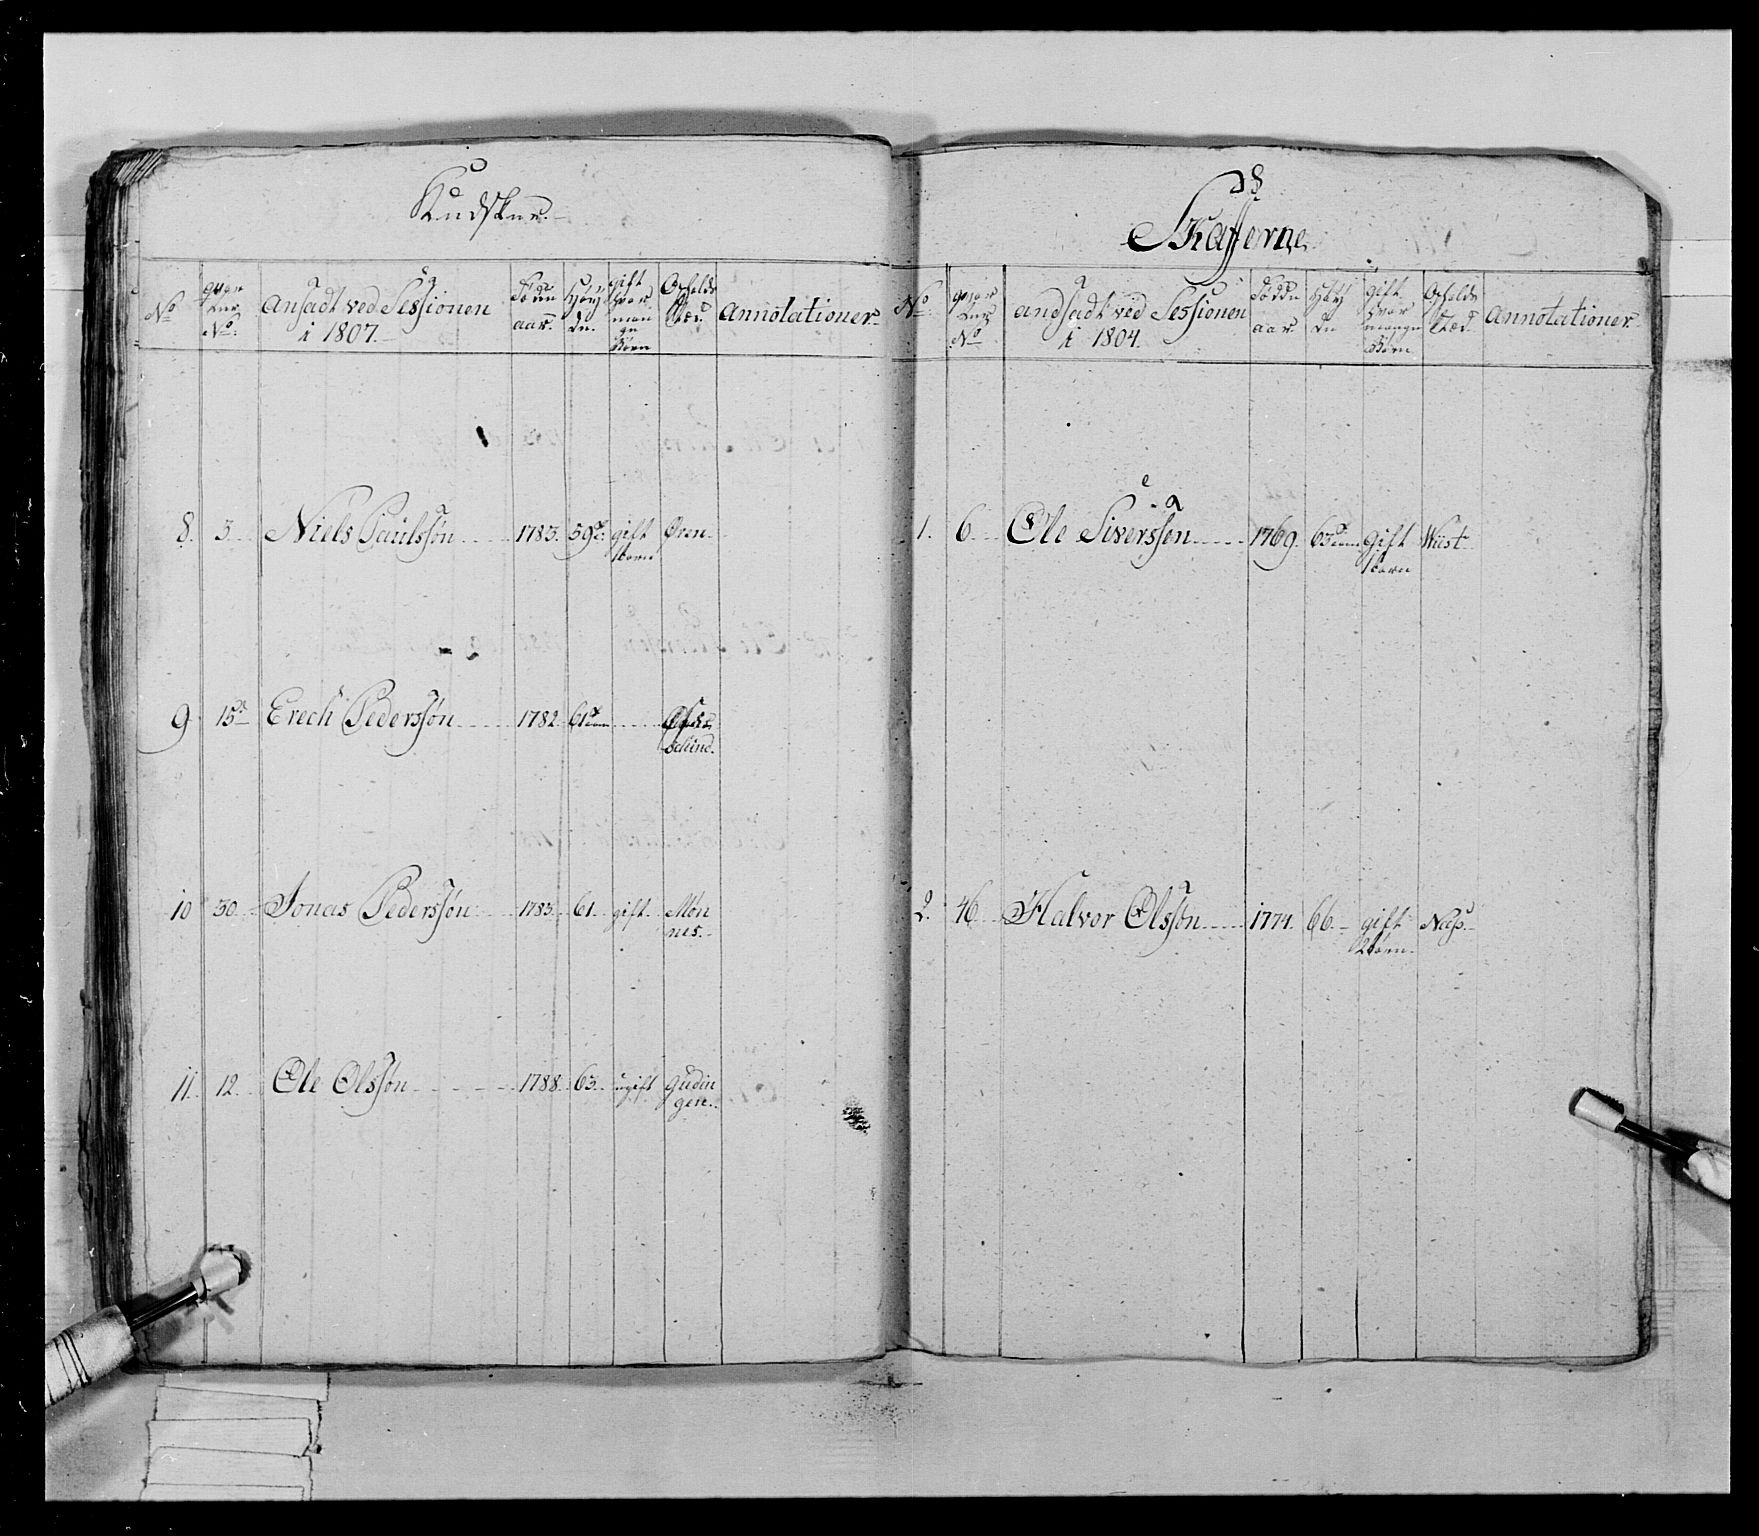 Kudsker.
No
No:
Ansadt ved Sessionen
i 1807.
Födde
aar.
Höy
de.
gift
hvor
man
ge
Börn
Opholds
Stæd.
Annotationer.
8. 3. Niels Paulssön 1783. 59 gift Ören.
1 barn
9. 15 Erech Pederssön 1782 61
10 50. Jonas Pederssön 1783. 61. gift. Mön
nes.
11. 12. Ole Olssön 1788. 63. ugift Gudin
gen.
Skafferne
No
No
Andsadt ved Sessionen
i 1804.
Födde
aar.
Höy
de
gift
hvor
mange
Börn
Opholds
Stæd.
Annotationer.
1. 6. Ole Siverssen 1769. 65 gift Wiist
1 barn
2. 46. Halvor Olssön 1774. 66. gift
2 börn.